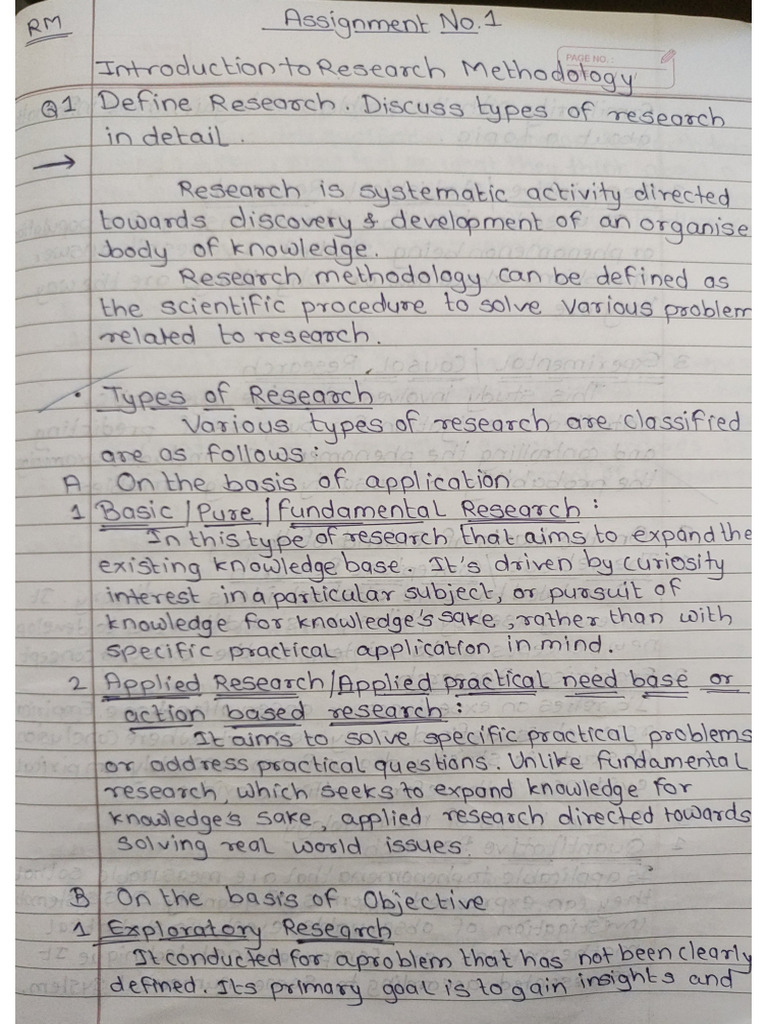 RM
Assignment No.1
PAGE NO.:
Introduction to Research Methodology
Q1 Define Research. Discuss types of research
in detail.
→
Research is systematic activity directed
towards discovery & development of an organise
body of knowledge.
Research methodology can be defined as
the scientific procedure to solve various problem
related to research.
• Types of Research
Various types of research are classified
are as follows:
A On the basis of application
1 Basic / Pure / fundamental Research :
In this type of research that aims to expand the
existing knowledge base. It's driven by curiosity
interest in a particular subject, or pursuit of
knowledge for knowledge's sake, rather than with
specific practical application in mind.
2 Applied Research/Applied practical need base or
action based research :
It aims to solve specific practical problems
or address practical questions. Unlike fundamental
research, which seeks to expand knowledge for
knowledge's sake, applied research directed towards
solving real world issues.
B On the basis of Objective
1 Exploratory Research
It conducted for a problem that has not been clearly
defined. Its primary goal is to gain insights and